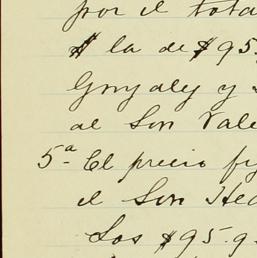 por el tota
$ la de $95.
Gonzalez y
al Son Vale
5ª El precio fi
el Son Hec
Los $95.9